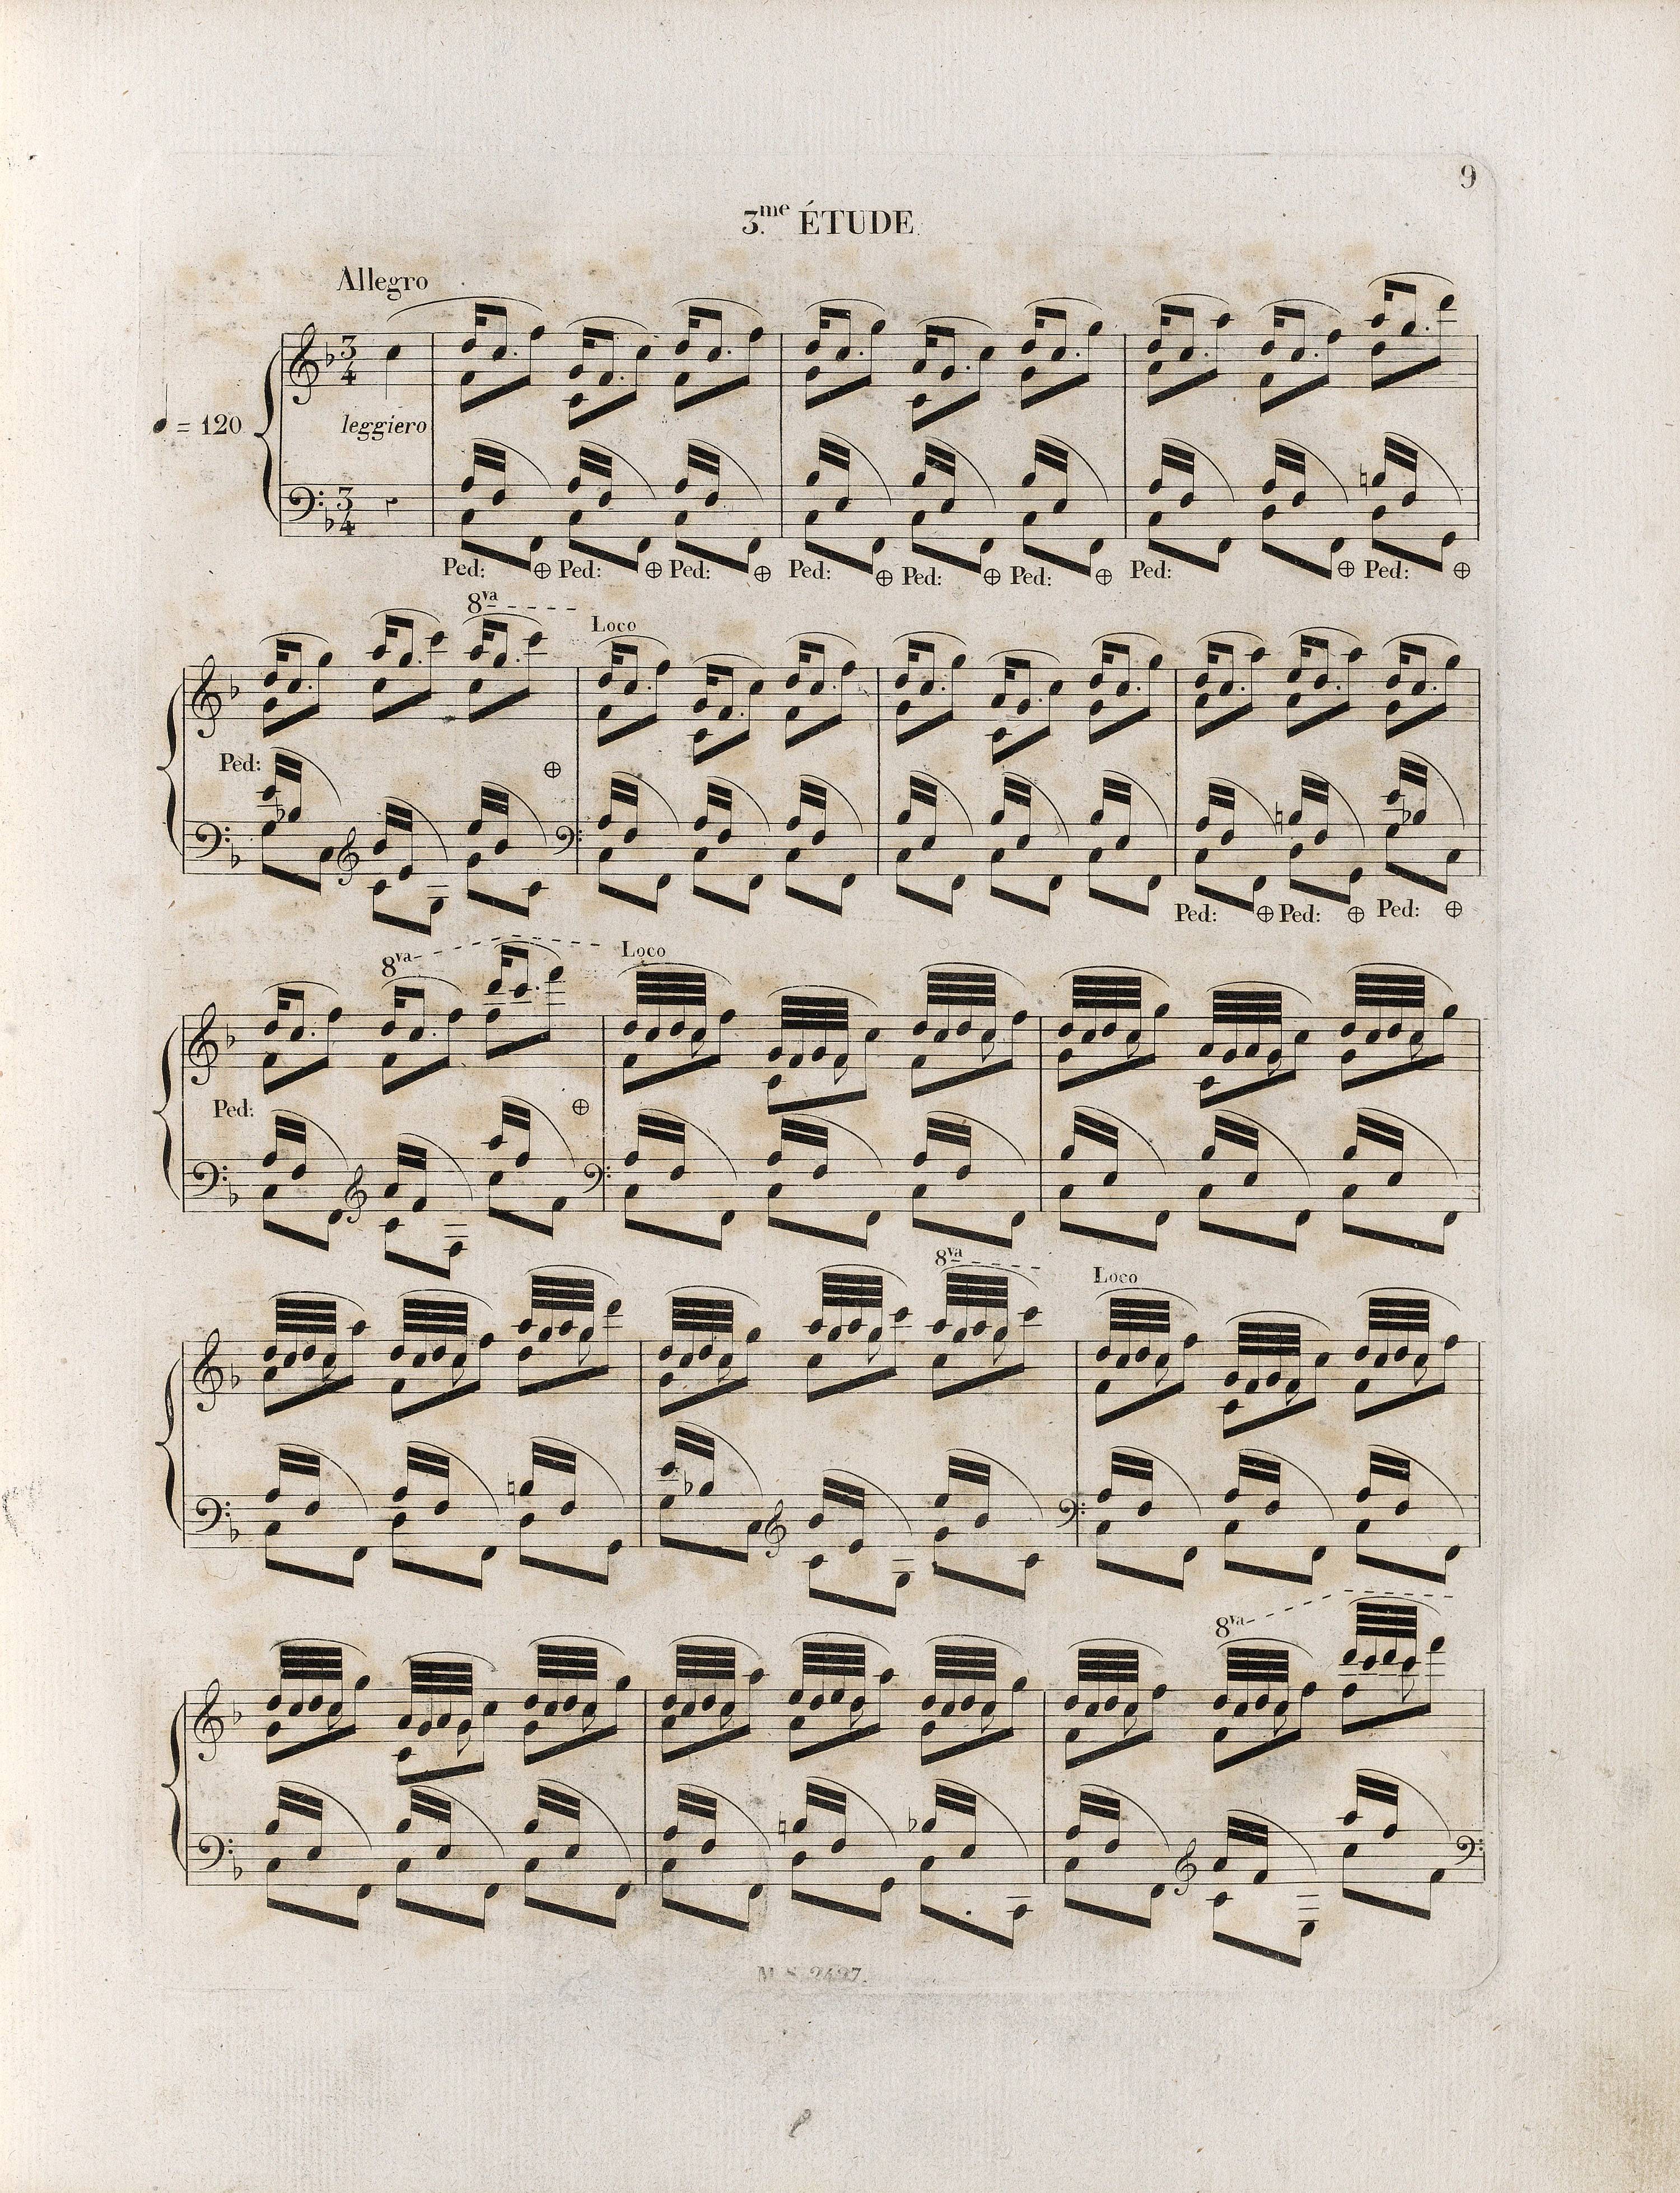 9
3.me ÉTUDE
Allegro
3 4
= 120
leggiero
3 4
Ped: Ped: Ped: Ped: Ped: Ped: Ped: Ped:
8va
Loco
Ped:
Ped: Ped: Ped:
8va Loco
Ped:
8va
Loco
8va
M.S. 2427.